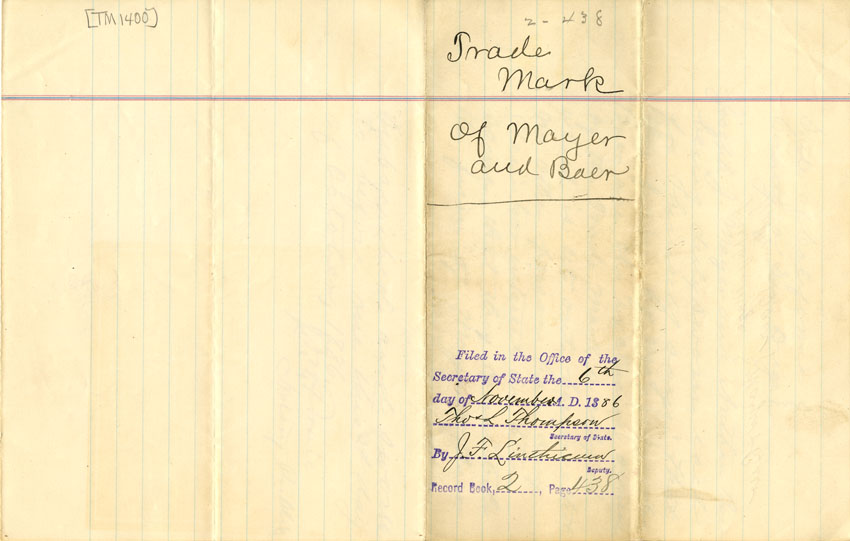 [TM1400]
2 - 438
Trade
Mark
Of Mayer
and Baer
Filed in the Office of the
Secretary of State the 6th
day of November A. D. 1886
Thos L Thompson
Secretary of State.
By J F Linthicum
Deputy.
Record Book, 2, Page 438